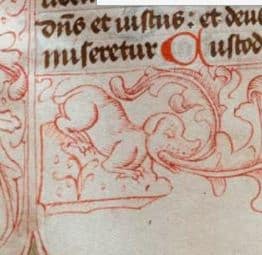 dn̄s et iustus: et deu
miseretur Custod